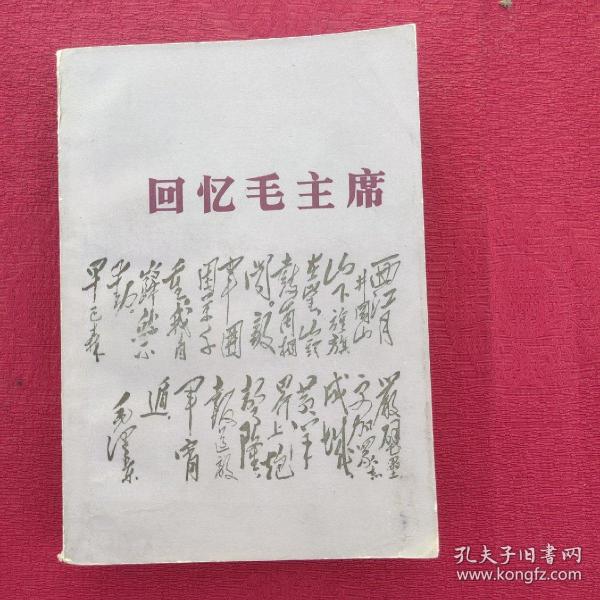 回忆毛主席
西江月
井岡山
山下旌旗
在望山头
鼓角相
闻。敌
军围
困万千
重我自
巋然不
动
早已森
嚴壁壘
更加众志
成城
黄洋
界上炮
声隆
报道敌
军宵
遁
毛泽东
孔夫子旧书网
www.kongfz.com